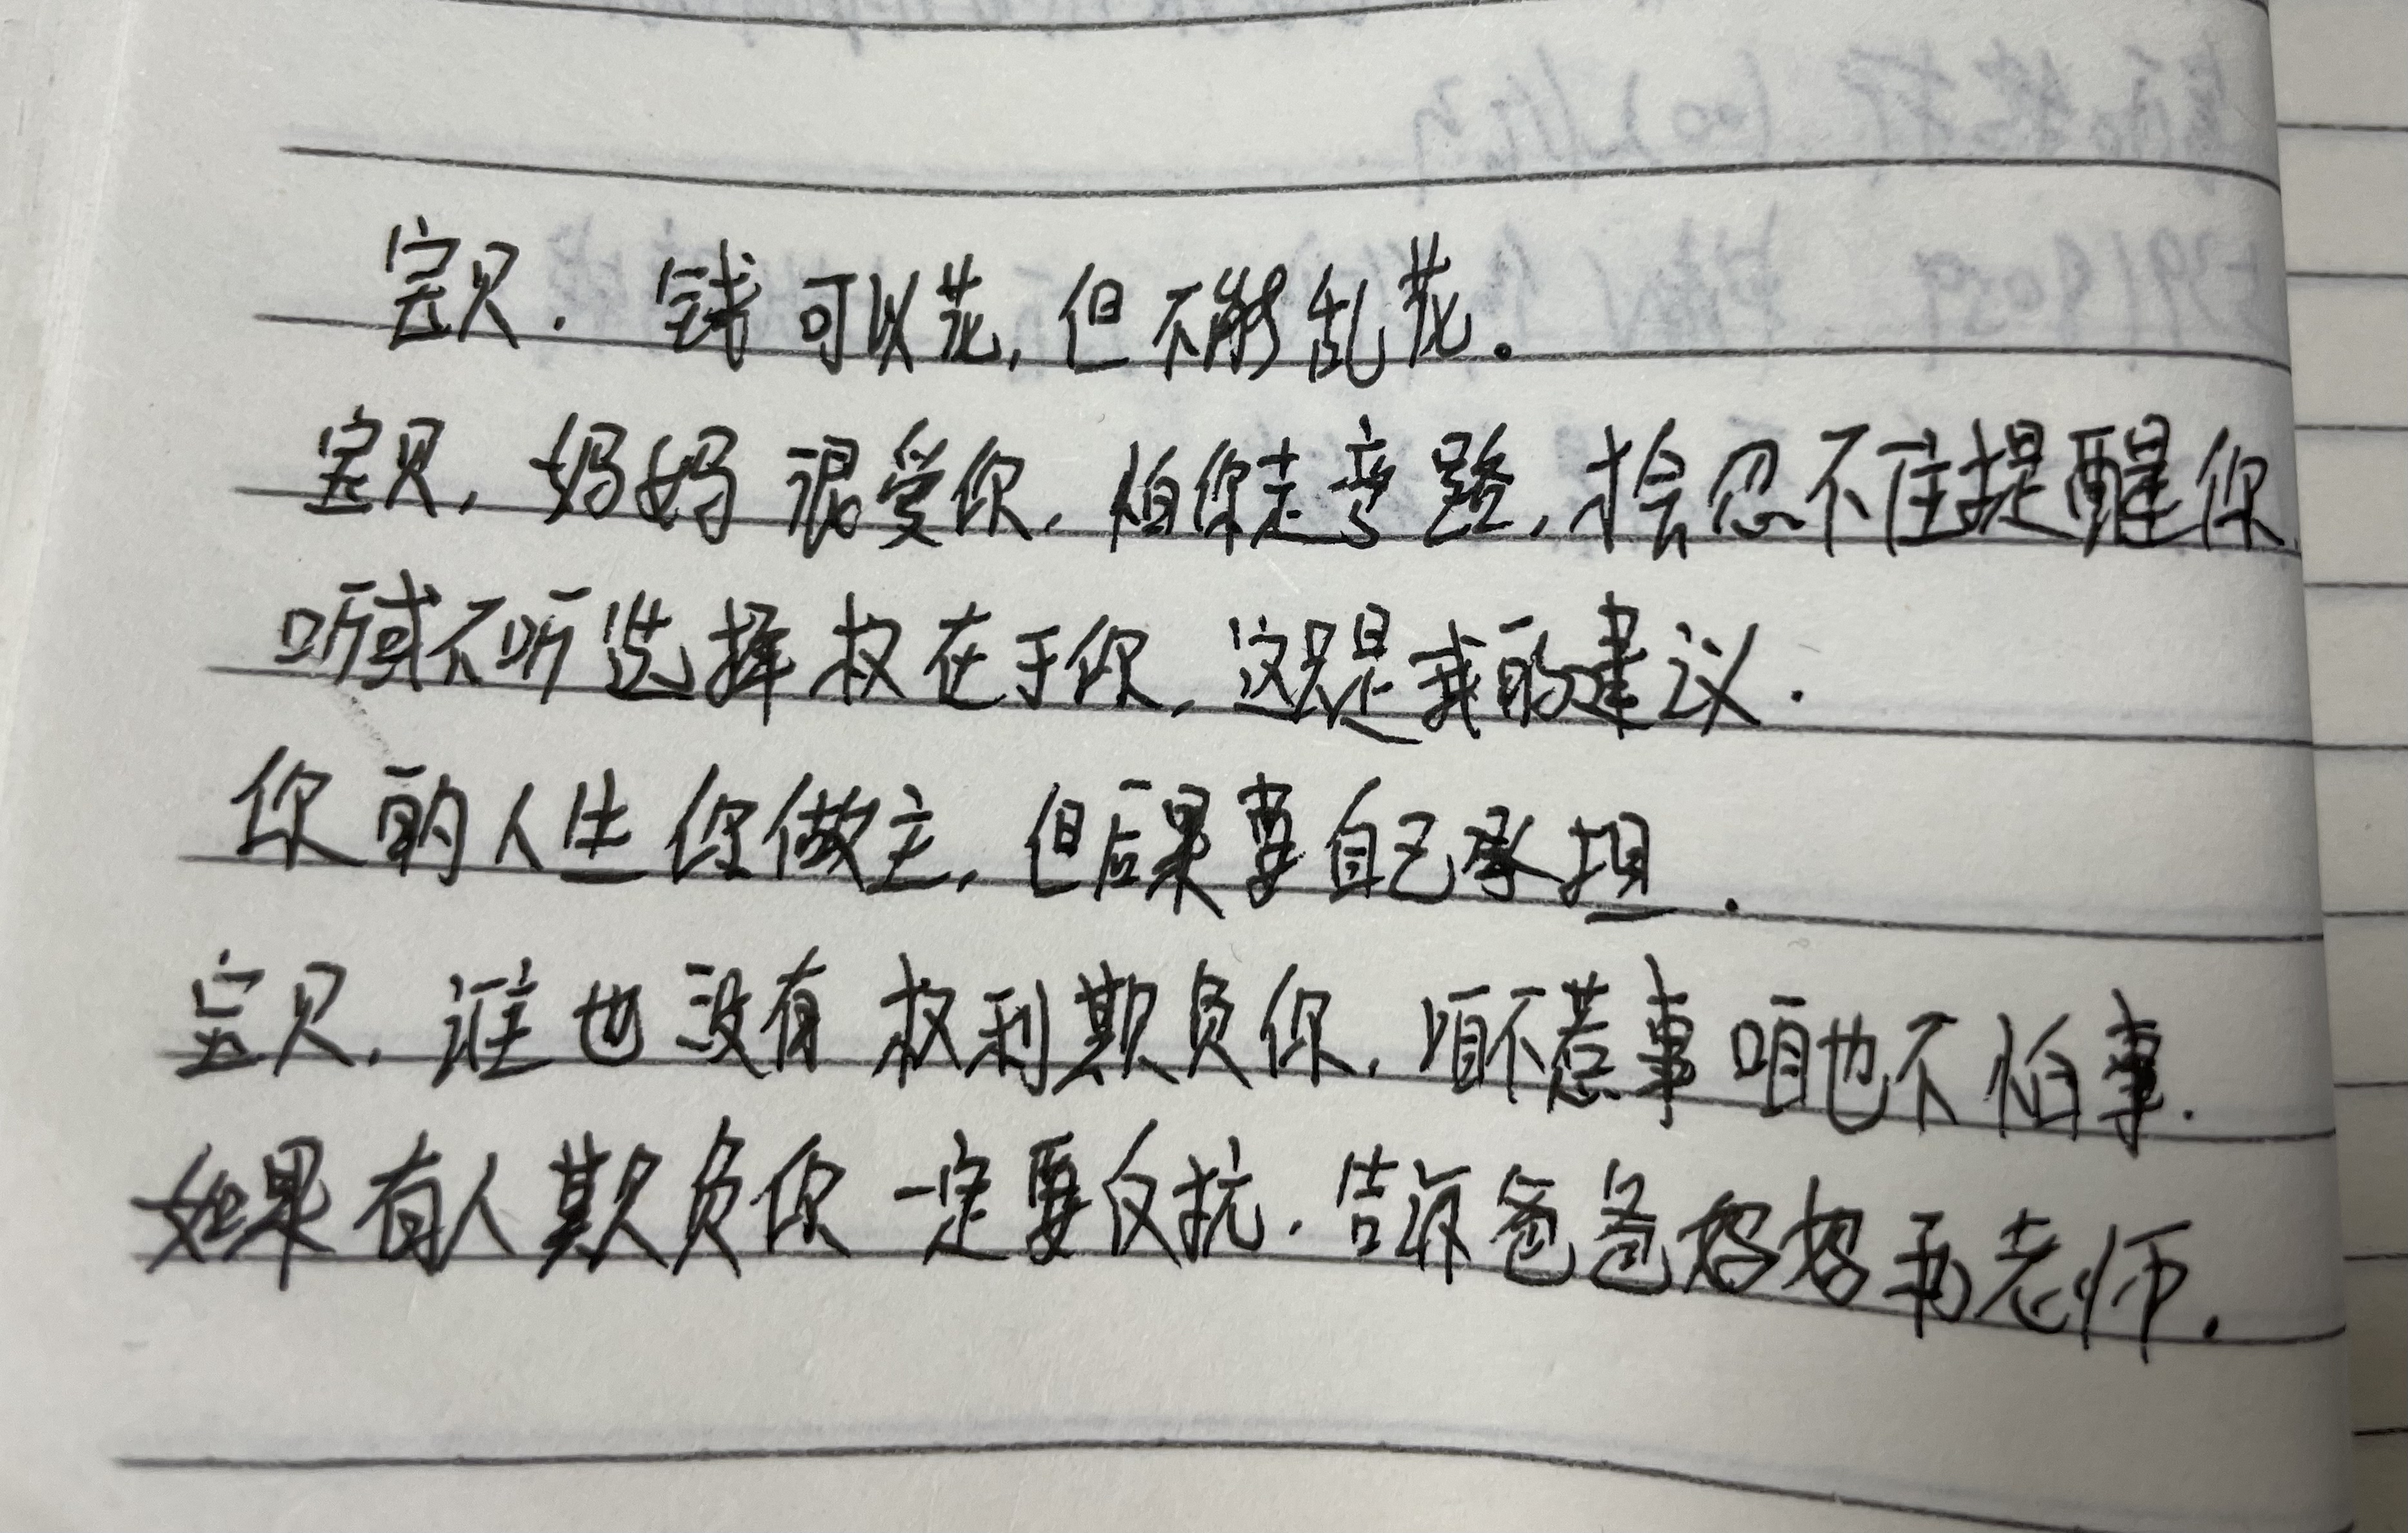 宝贝. 钱可以花,但不能乱花.
宝贝,妈妈很爱你,怕你走弯路,才会忍不住提醒你,
听或不听选择权在于你,这只是我的建议.
你的人生你做主,但后果要自己承担.
宝贝,谁也没有权利欺负你,咱不惹事咱也不怕事.
如果有人欺负你一定要反抗.告诉爸爸妈妈和老师.